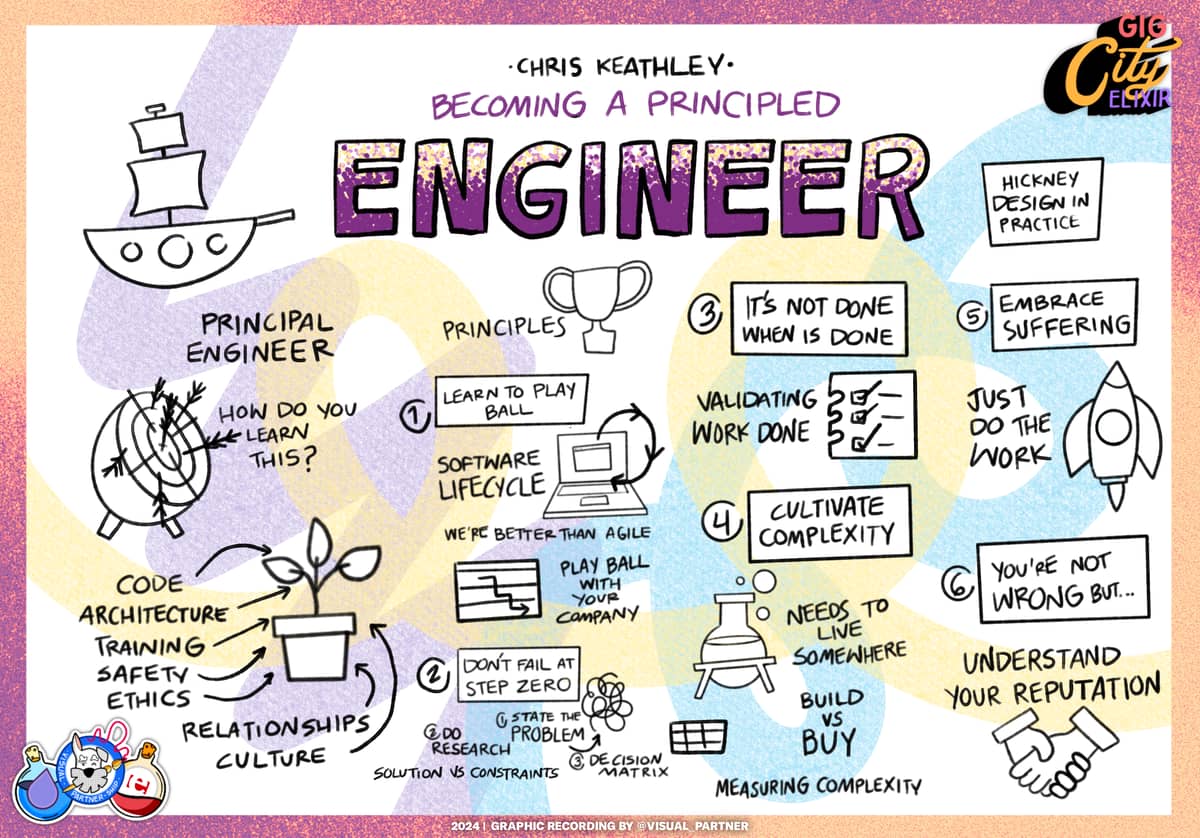 GIG
City
ELIXIR
·CHRIS KEATHLEY·
BECOMING A PRINCIPLED
ENGINEER
HICKNEY
DESIGN IN
PRACTICE
PRINCIPAL
ENGINEER
HOW DO YOU
LEARN
THIS?
CODE
ARCHITECTURE
TRAINING
SAFETY
ETHICS
RELATIONSHIPS
CULTURE
PRINCIPLES
1
LEARN TO PLAY
BALL
SOFTWARE
LIFECYCLE
WE'RE BETTER THAN AGILE
PLAY BALL
WITH
YOUR
COMPANY
2
DON'T FAIL AT
STEP ZERO
1 STATE THE
PROBLEM
2 DO
RESEARCH
3 DECISION
MATRIX
SOLUTION VS CONSTRAINTS
3
IT'S NOT DONE
WHEN IS DONE
VALIDATING
WORK DONE
4
CULTIVATE
COMPLEXITY
NEEDS TO
LIVE
SOMEWHERE
BUILD
VS
BUY
MEASURING COMPLEXITY
5
EMBRACE
SUFFERING
JUST
DO THE
WORK
6
YOU'RE NOT
WRONG BUT...
UNDERSTAND
YOUR REPUTATION
VISUAL
PARTNER-SHIP
2024 | GRAPHIC RECORDING BY @VISUAL_PARTNER